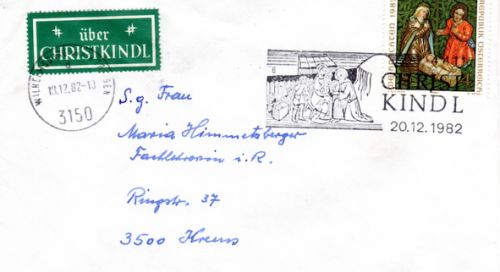 über
CHRISTKINDL
18.12.82-13
3150
REPUBLIK ÖSTERREICH
CHRIST
KINDL
20.12.1982
S.g. Frau
Maria Himmetzberger
Fachlehrerin i.R.
Ringstr. 37
3500 Krems